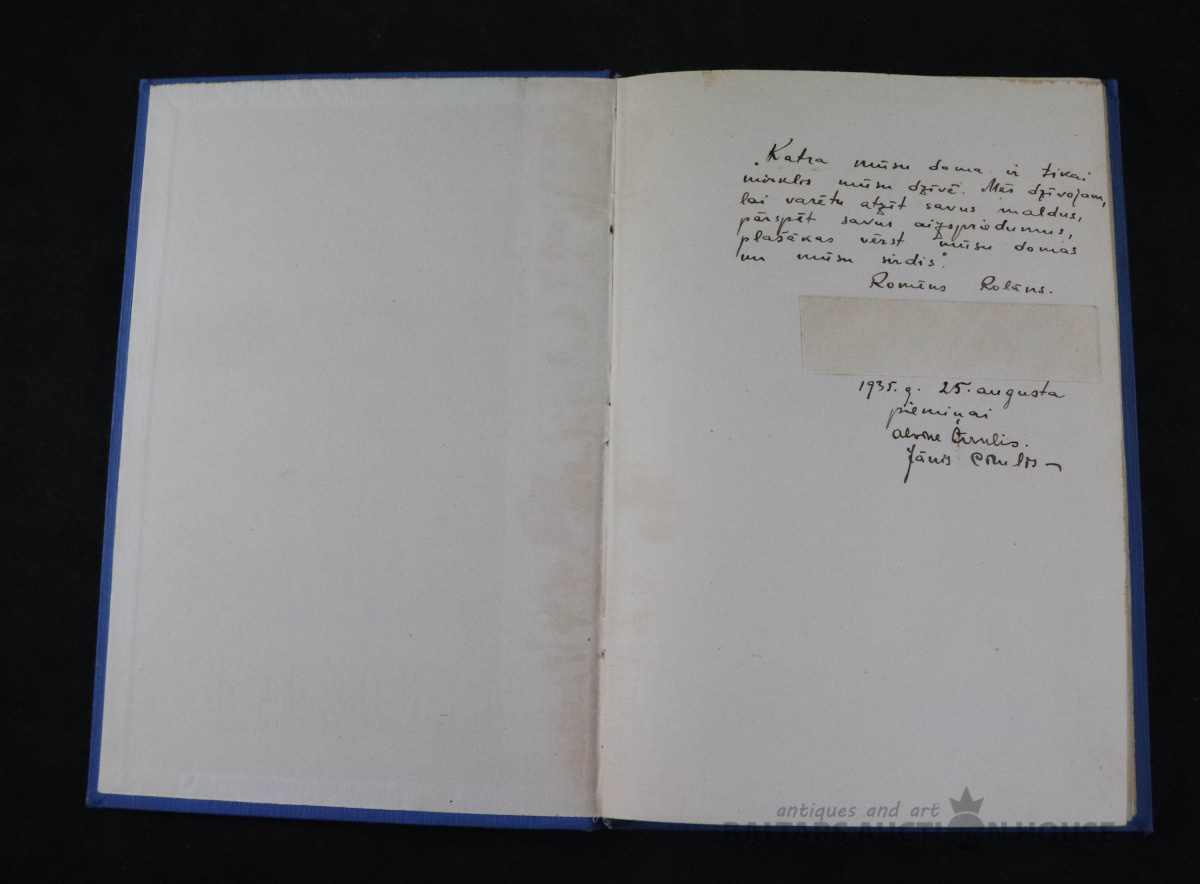 "Katra mūsu doma ir tikai
mirklis mūsu dzīvē. Mēs dzīvojam,
lai varētu atzīt savus maldus,
pārspēt savus aizspriedumus,
plašākas vērst mūsu domas
un mūsu sirdis".
Romēns Rolāns.
1935. g. 25. augusta
piemiņai
Jānis
antiques and art
BALTARS AUCTION HOUSE